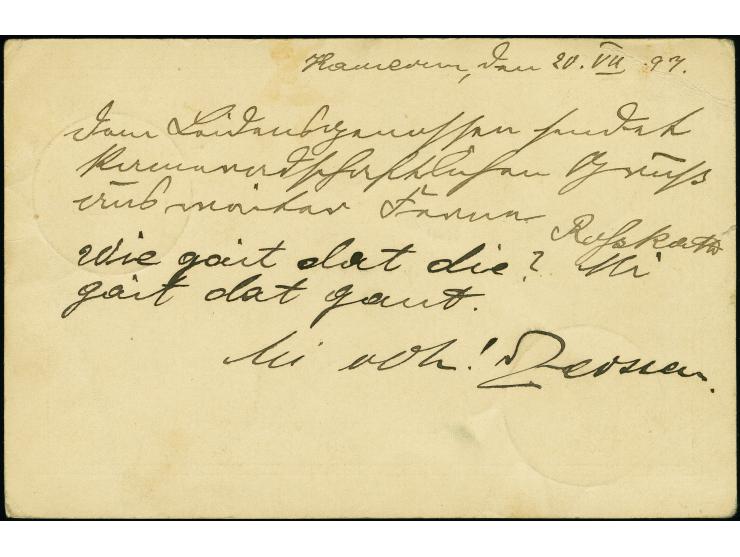 Kamerun, den 20. VII. 97.
Dem Leidensgenossen sendet
kameradschaftlichen Gruß
aus weiter Ferne
Roßkath
Wie gait dat die? Mi
gait dat gaut.
Mi och!